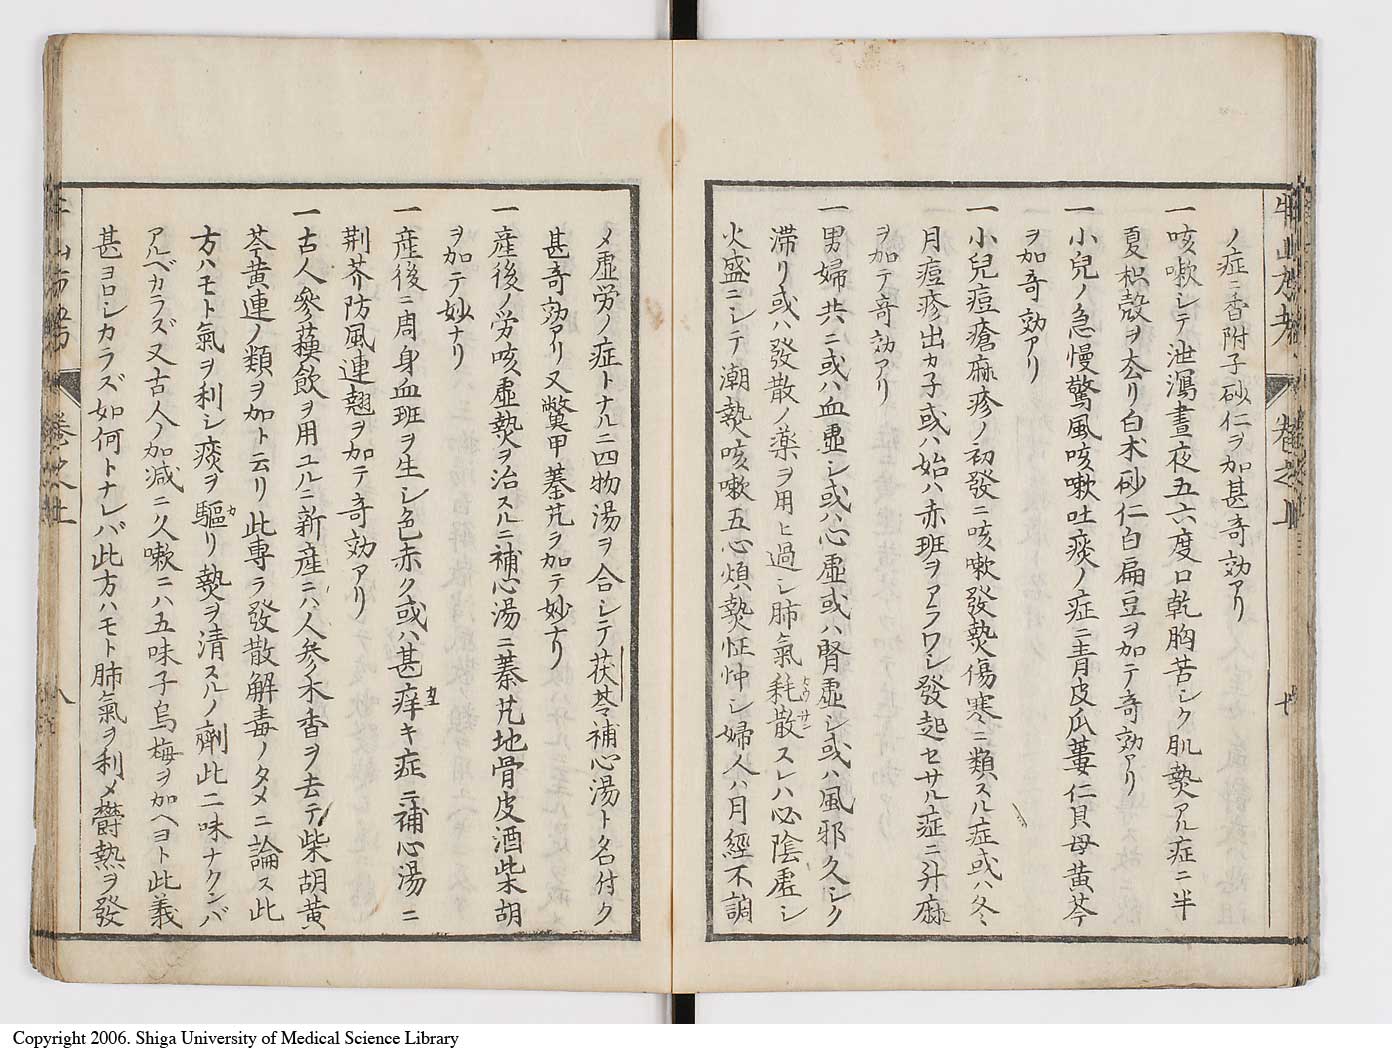 ノ症ニ香附子砂仁ヲ加甚奇効アリ
一咳嗽シテ泄瀉晝夜五六度口乾胸苦シク肌𤍠アル症ニ半
夏枳殻ヲ去リ白朮砂仁白扁豆ヲ加テ奇効アリ
一小兒ノ急慢驚風咳嗽吐痰ノ症ニ青皮瓜蔞仁貝母黄芩
ヲ加奇効アリ
一小兒痘瘡麻疹ノ初發ニ咳嗽發𤍠傷寒ニ類スル症或ハ冬
月痘疹出カ子或ハ始ハ赤班ヲアラワシ發起セサル症ニ升麻
ヲ加テ奇効アリ
一男婦共ニ或ハ血虚シ或ハ心虚或ハ腎虚シ或ハ風邪久シク
滞リ或ハ發散ノ薬ヲ用ヒ過シ肺氣耗散スレハ必陰虚シ
火盛ニシテ潮𤍠咳嗽五心煩𤍠怔忡シ婦人ハ月經不調
牛山方考 卷之上
メ虚労ノ症トナルニ四物湯ヲ合シテ茯苓補心湯ト名付ク
甚奇効アリ又鱉甲蓁艽ヲ加テ妙ナリ
一産後ノ労咳虚𤍠ヲ治スルニ補心湯ニ蓁艽地骨皮酒柴胡
ヲ加テ妙ナリ
一産後ニ周身血班ヲ生シ色赤ク或ハ甚痒キ症ニ補心湯ニ
荆芥防風連翹ヲ加テ奇効アリ
一古人參蘓飲ヲ用ユルニ新産ニハ人参木香ヲ去テ柴胡黄
芩黄連ノ類ヲ加ト云リ此専ラ發散解毒ノタメニ論ス此
方ハモト氣ヲ利シ痰ヲ驅リ𤍠ヲ清スルノ劑此二味ナクンバ
アルベカラズ又古人ノ加減ニ久嗽ニハ五味子烏梅ヲ加ヘヨト此義
甚ヨロシカラズ如何トナレバ此方ハモト肺氣ヲ利メ欝熱ヲ發
卷之上 八
Copyright 2006. Shiga University of Medical Science Library